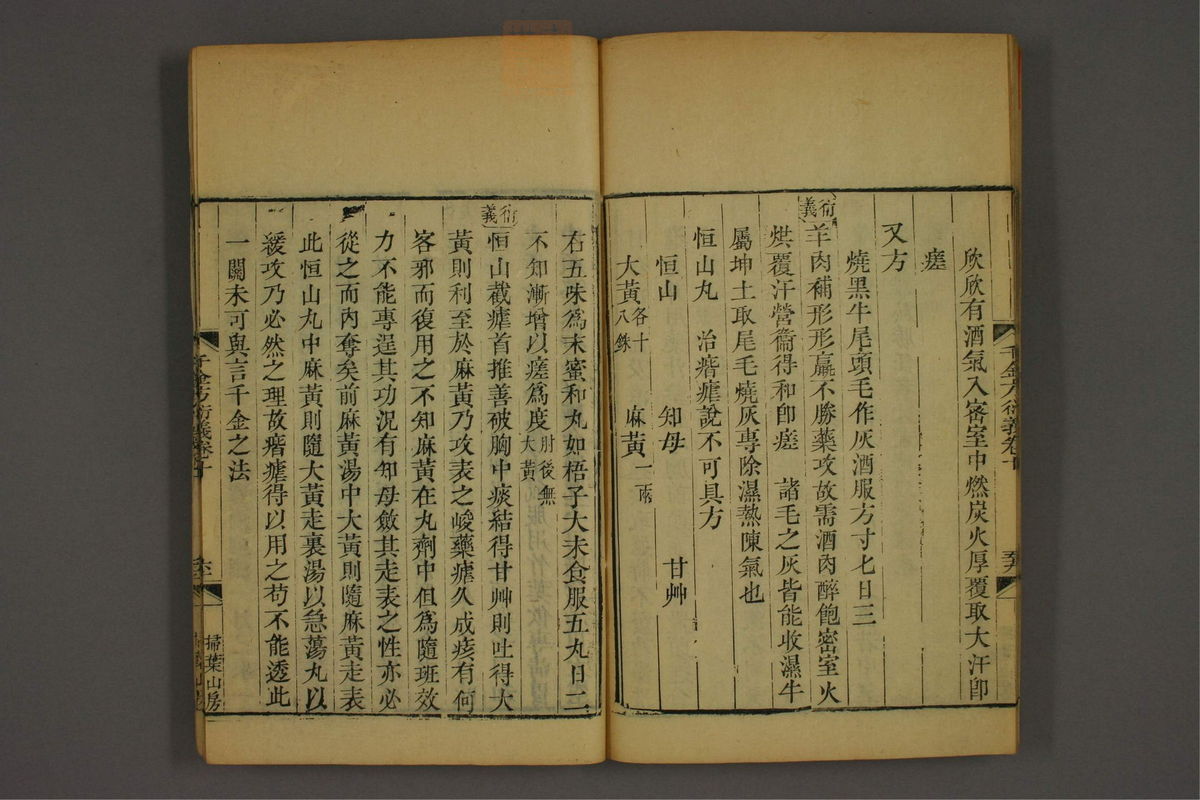 欣欣有酒氣入密室中燃炭火厚覆取大汗卽
瘥
又方
燒黑牛尾頭毛作灰酒服方寸匕日三
衍義
羊肉補形形羸不勝藥攻故需酒肉醉飽密室火
烘覆汗營衞得和卽瘥　諸毛之灰皆能收濕牛
屬坤土取尾毛燒灰專除濕熱陳氣也
恒山丸　治瘖瘧說不可具方
恒山　知母　甘艸
大黃各十八銖　麻黃一兩
右五味爲末蜜和丸如梧子大未食服五丸日二
不知漸增以瘥爲度肘後無大黃
衍義
恒山截瘧首推善破胸中痰結得甘艸則吐得大
黃則利至於麻黃乃攻表之峻藥瘧久成痎有何
客邪而復用之不知麻黃在丸劑中但爲隨班效
力不能專逞其功況有知母斂其走表之性亦必
從之而內奪矣前麻黃湯中大黃則隨麻黃走表
此恒山丸中麻黃則隨大黃走裏湯以急蕩丸以
緩攻乃必然之理故瘖瘧得以用之苟不能透此
一關未可與言千金之法
千金方衍義卷十
掃葉山房